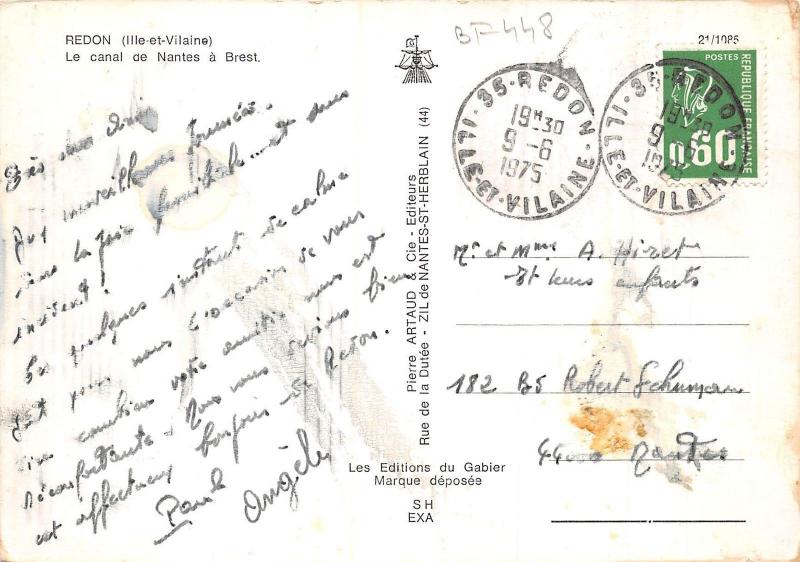 BF448
REDON (Ille-et-Vilaine)
Le canal de Nantes à Brest.
21/1085
POSTES
REPUBLIQUE FRANÇAISE
0.60
35-REDON
19H30
9-6
1975
ILLE-ET-VILAINE
35-REDON
19H30
9-6
1975
ILLE-ET-VILAINE
Très chers amis
merveilleuse journée
dans la joie familiale et sans
incident.
Ces quelques instants de calme
sont pour nous l'occasion de vous
dire combien votre amitié nous est
réconfortante. Nous vous redisons bien
affectueux bonjour de Redon.
Paul
Angèle
Pierre ARTAUD & Cie - Editeurs
Rue de la Dutée - ZIL de NANTES-ST-HERBLAIN (44)
Mr et Mme A. Hizet
et leurs enfants
182 Bd Robert Schuman
44000 Nantes
Les Editions du Gabier
Marque déposée
SH
EXA